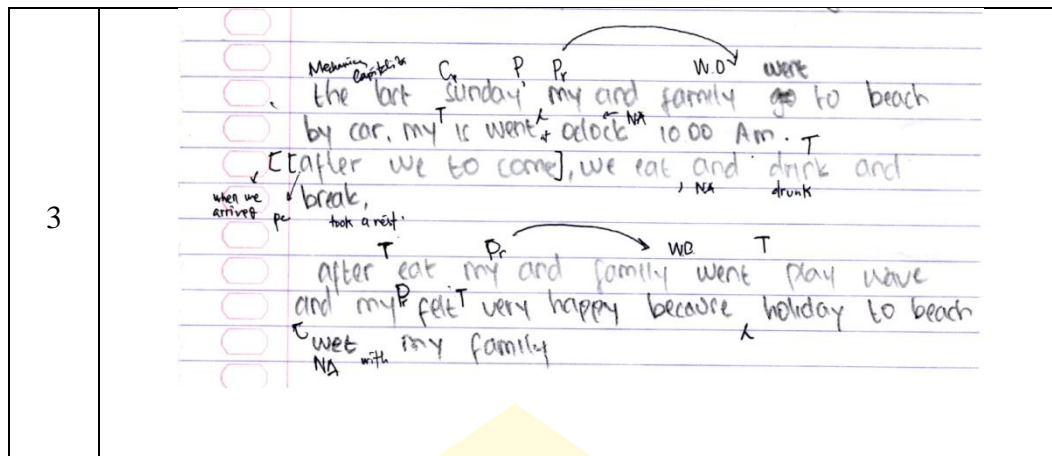 3
Mechanics Capitalize C P Pr W.O went
the last sunday, my and family go to beach
by car. my T is went, at oclock NA 10 00 Am. T
[[after we to come], we eat and drink and
when we arrived pc , NA drunk
break,
took a rest.
T Pr W.O. T
after eat my and family went play wave
and my Pr felt T very happy because holiday to beach
wet my family
NA with